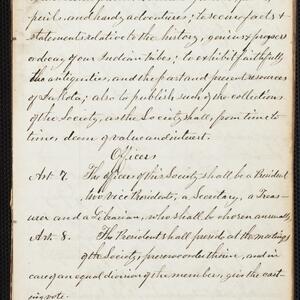 perils and hardy adventures; to secure facts &
statements relative to the history, genius & progress
& decay of our Indian tribes; to exhibit faithfully
the antiquities, and the past and present resources
of Dakota; also to publish such of the collections
of the Society, as the Society shall, from time to
time, deem of value and interest.
Officers
Art 7. The officers of this Society shall be a President
two Vice Presidents, a Secretary, a Treas-
urer and a Librarian, who shall be chosen annually
Art. 8. The President shall preside at the meetings
of the Society, preserve order therein, and in
case of an equal division of the members, give the cast-
ing vote.